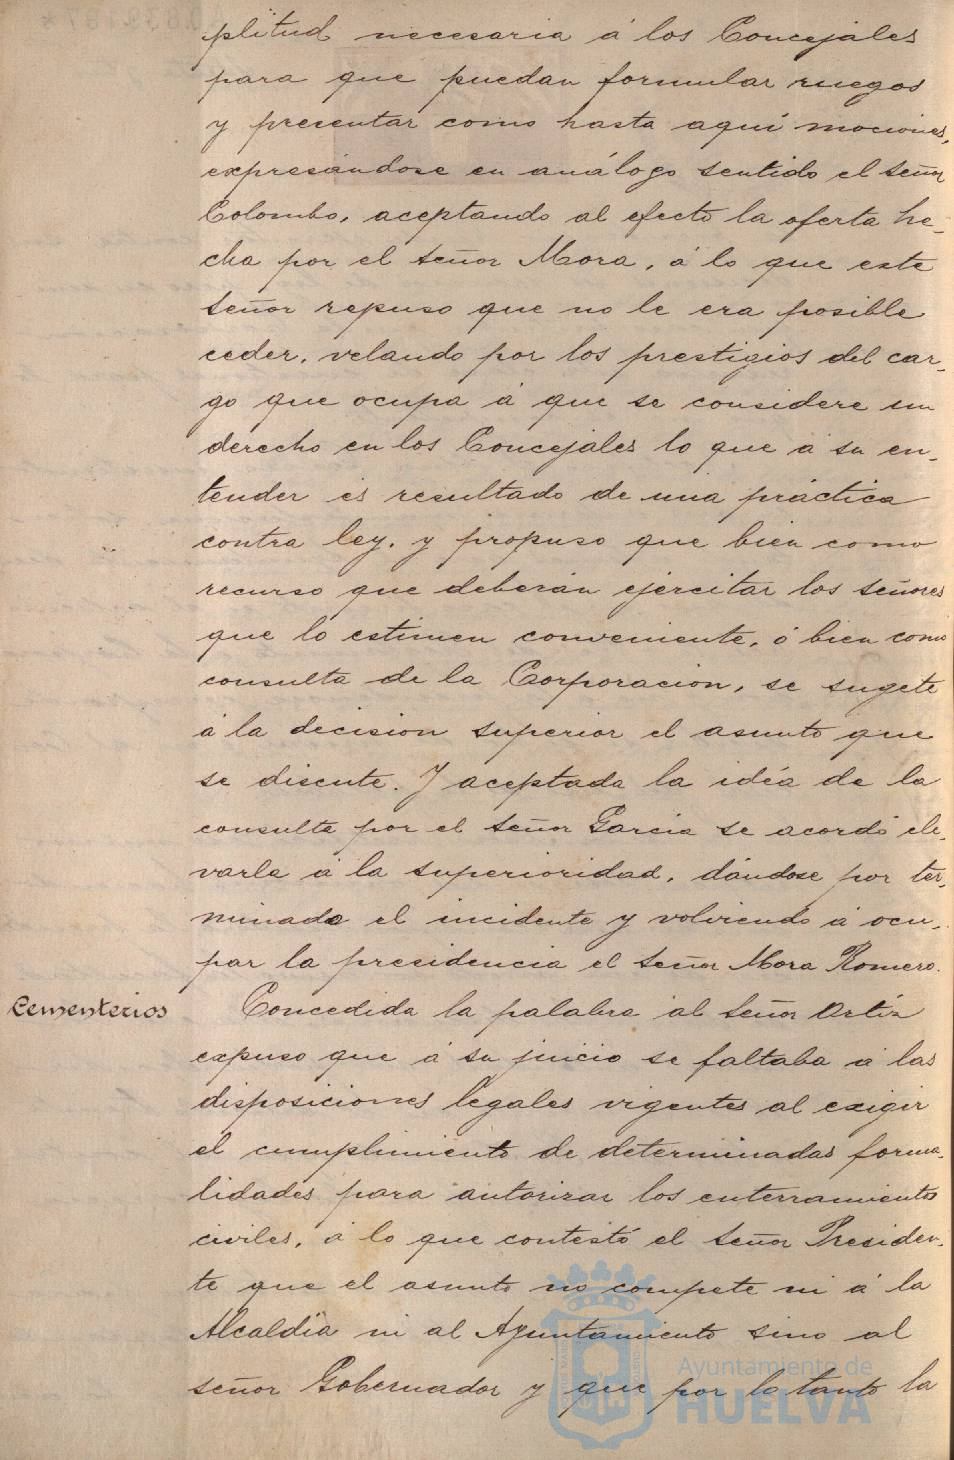 plitud necesaria á los Concejales
para que puedan formular ruegos
y presentar como hasta aquí mociones,
expresándose en análogo sentido el señor
Colombo, aceptando al efecto la oferta he-
cha por el señor Mora, á lo que este
señor repuso que no le era posible
ceder, velando por los prestigios del car-
go que ocupa á que se considere un
derecho en los Concejales lo que á su en-
tender és resultado de una práctica
contra ley, y propuso que bien como
recurso que deberán ejercitar los señores
que lo estimen conveniente, ó bien como
consulta de la Corporacion, se sugete
á la decision superior el asunto que
se discute. Y aceptada la idéa de la
consulta por el señor Garcia se acordó ele-
varla á la superioridad, dándose por ter-
minado el incidente y volviendo á ocu-
par la presidencia el señor Mora Romero.
Cementerios
Concedida la palabra al señor Ortiz
expuso que á su juicio se faltaba á las
disposiciones legales vigentes al exigir
el cumplimiento de determinadas forma-
lidades para autorizar los enterramientos
civiles, á lo que contestó el señor Presiden-
te que el asunto no compete ni á la
Alcaldía ni al Ayuntamiento sino al
señor Gobernador y que por lo tanto la
Ayuntamiento de
HUELVA